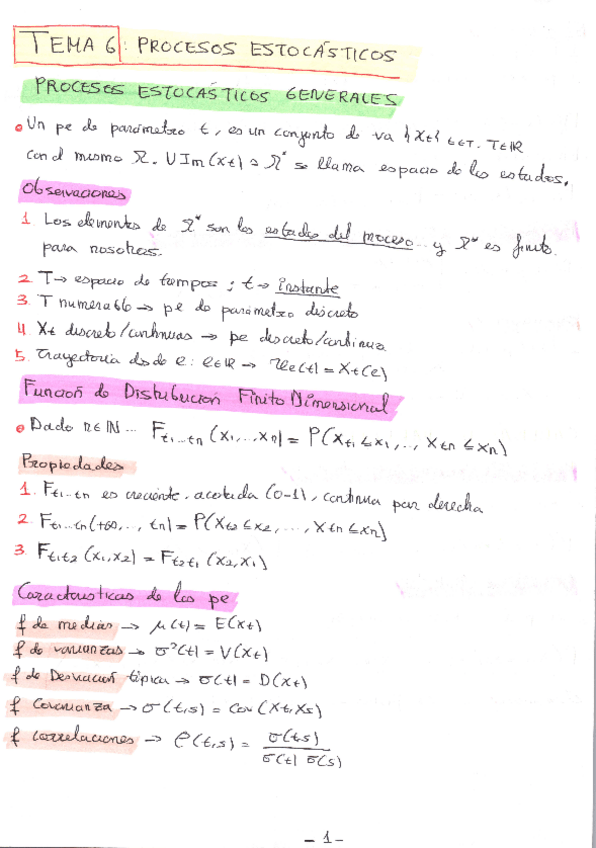 TEMA 6: PROCESOS ESTOCÁSTICOS
PROCESOS ESTOCÁSTICOS GENERALES
• Un pe de parámetro t, es un conjunto de va {Xt} t∈T. T∈ℝ
con el mismo Ω. ∪Im(Xt) = Ω* se llama espacio de los estados.
Observaciones
1. Los elementos de Ω* son los estados del proceso... y Ω* es finito
para nosotros.
2. T → espacio de tiempos ; t → instante
3. T numerable → pe de parámetro discreto
4. Xt discreto/continuas → pe discreto/continua
5. Trayectoria desde e: e∈Ω → xe(t) = Xt(e)
Función de Distribución Finito Dimensional
• Dado n∈ℕ... Ft1...tn (x1,...,xn) = P(Xt1 ≤ x1,..., Xtn ≤ xn)
Propiedades
1. Ft1...tn es creciente, acotada (0-1), continua por derecha
2. Ft1...tn(+∞,..., tn) = P(Xt2 ≤ x2,..., Xtn ≤ xn)
3. Ft1t2 (x1,x2) = Ft2t1 (x2,x1)
Características de los pe
f de medias → μ(t) = E(Xt)
f de varianzas → σ²(t) = V(Xt)
f de Desviación típica → σ(t) = D(Xt)
f Covarianza → σ(t,s) = Cov(Xt,Xs)
f correlaciones → ρ(t,s) = σ(t,s) / σ(t) σ(s)
- 1 -